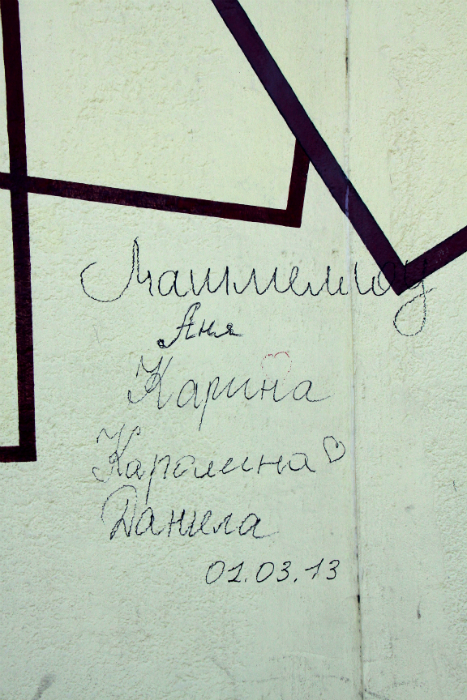 Машмемлоу
Аня
Карина
Каралина
Даниела
01.03.13